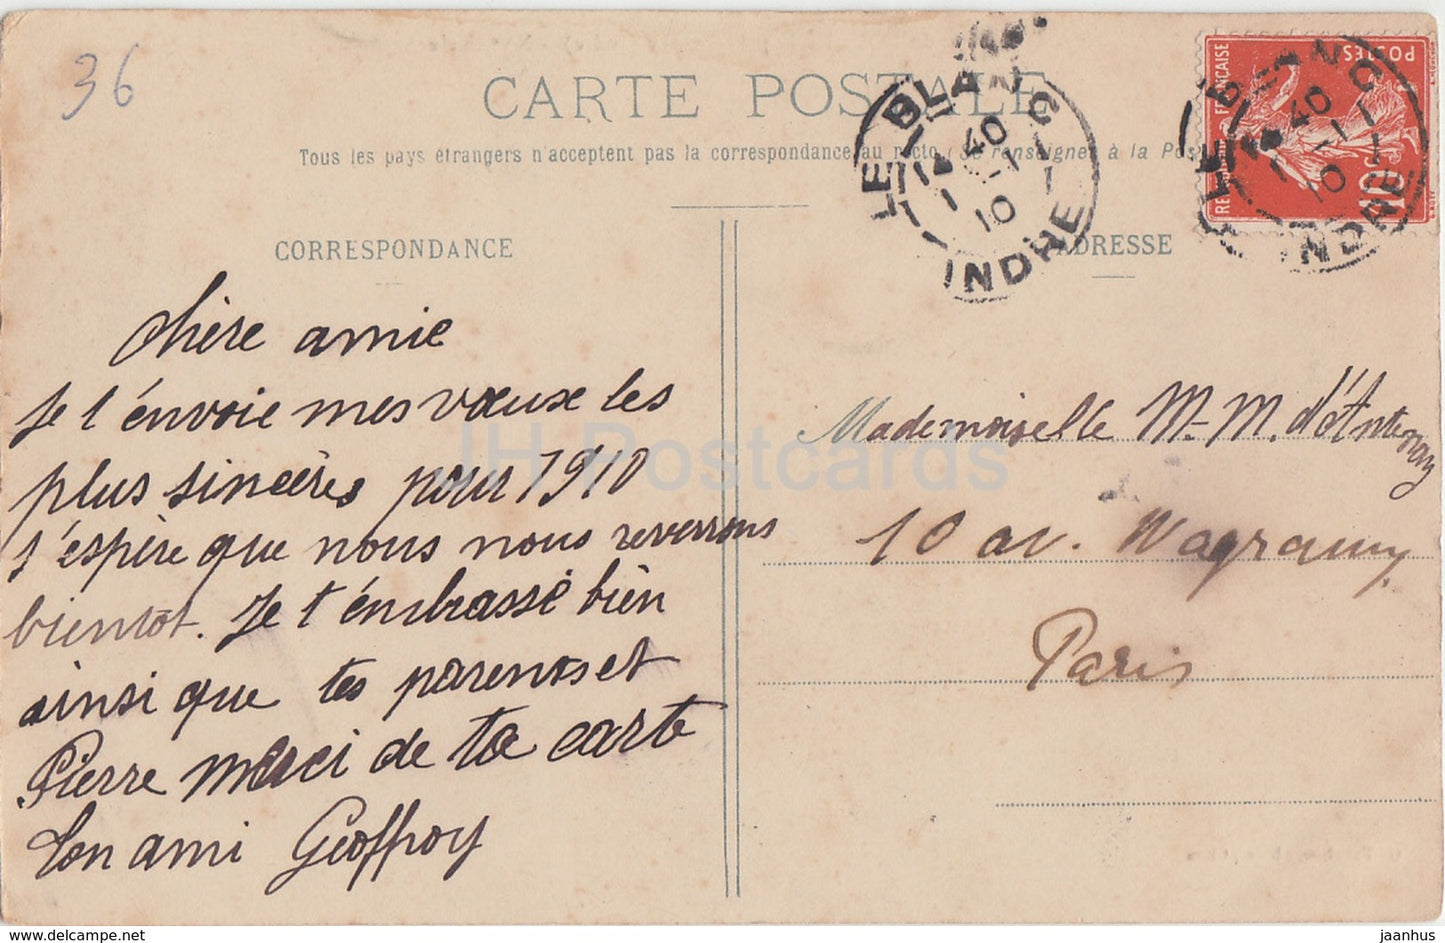 36
CARTE POSTALE
Tous les pays étrangers n'acceptent pas la correspondance au recto (Se renseigner à la Poste)
LE BLANC
40
1-1
10
INDRE
POSTES
FRANÇAISE
10c
LE BLANC
40
1-1
10
INDRE
CORRESPONDANCE
chère amie
Je t'énvoie mes vœux les
plus sincères pour 1910
J'espère que nous nous reverrons
bientôt. Je t'émbrasse bien
ainsi que tes parents et
Pierre merci de ta carte
Ton ami Geoffroy
ADRESSE
Mademoiselle M.-M. d'Antenay
10 av. Wagram
Paris
JH Postcards
www.delcampe.net
jaanhus